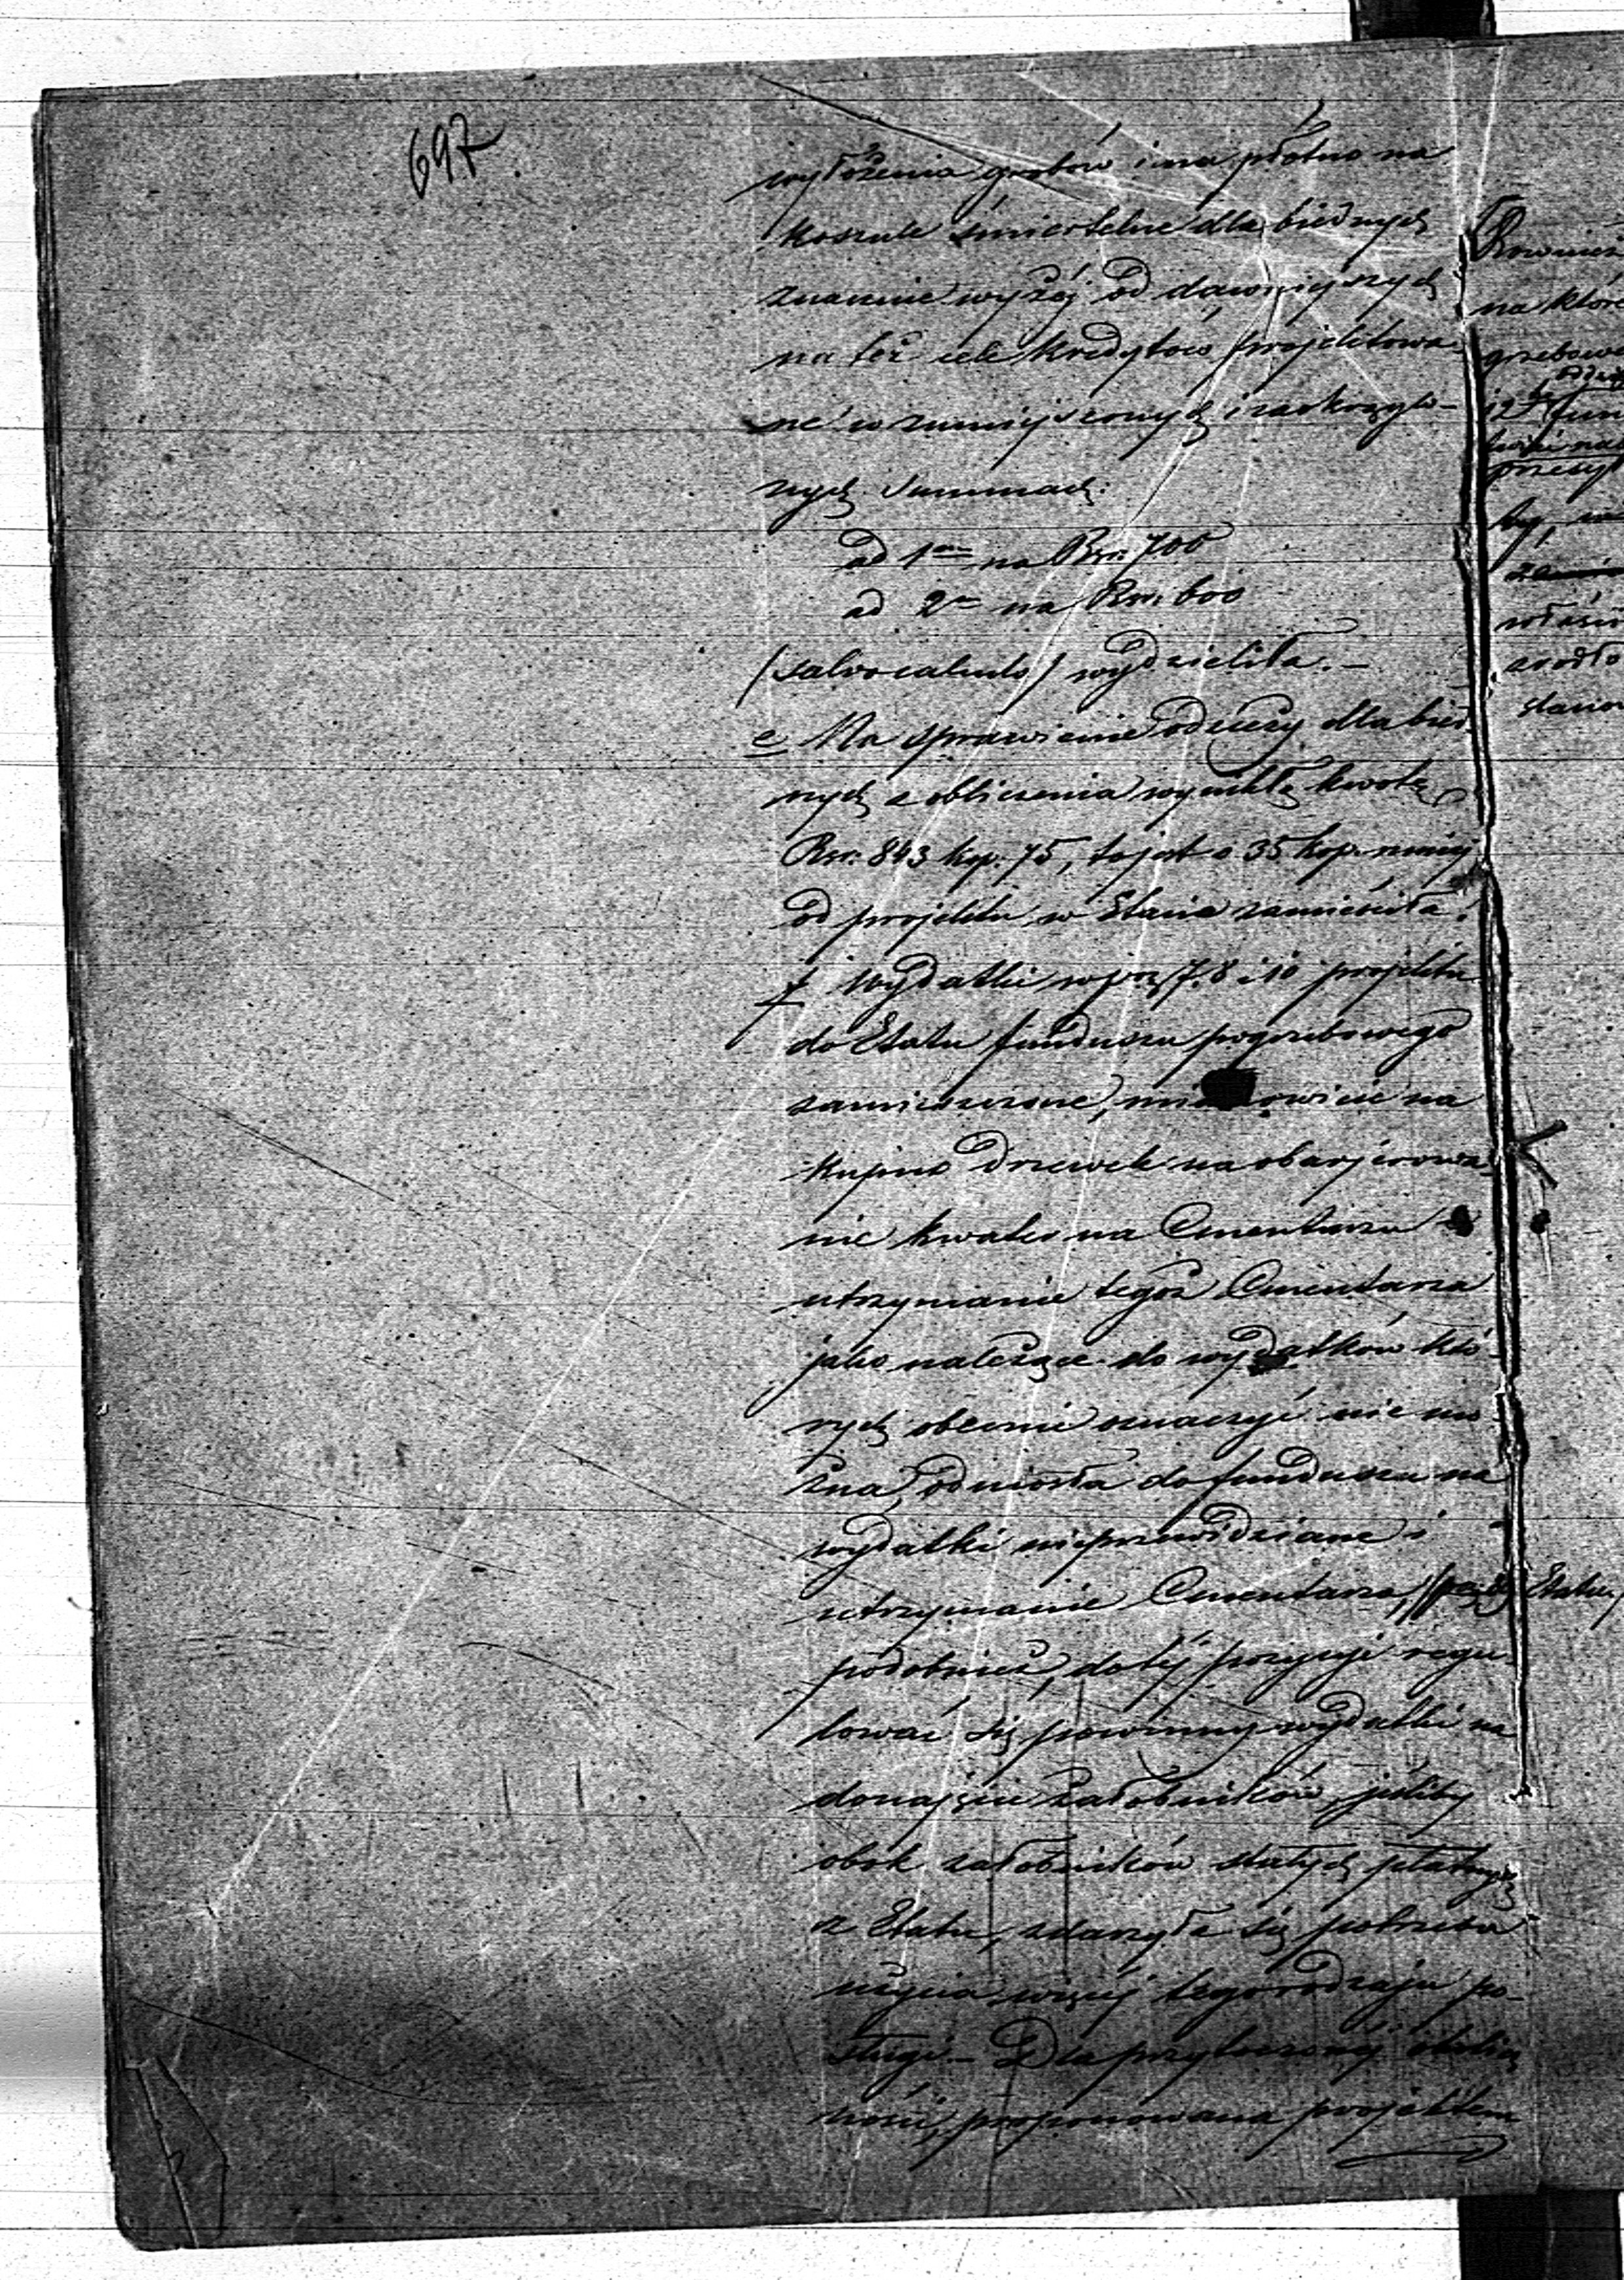 697.
wyłożenia grobów i na płótno na
koszule śmiertelne dla biednych
znacznie wyżéj od dawniejszych
na też cele kredytów, projektowa-
ne w zmniejszonych i zaokrąglo-
nych Summach:
ad 1m na Rsr. 700
ad 2m na Rsr. 600
(salvo calculo) wydzieliła. —
e Na sprawienie odzieży dla bied-
nych z obliczenia wynikłą kwotę
Rsr. 843 kop. 75, to jest o 35 kop. mniéj
od projektu w Etacie zamieściła.
f Wydatki w poz. 7. 8 i 10 projektu
do Etatu funduszu pogrzebowego
zamieszczone, mianowicie na
kupno drzewek na obarjerowa-
nie kwater na Cmentarzu
utrzymanie tegoż Cmentarza
jako należące do wydatków któ-
rych obecnie oznaczyć nie mo-
żna, odniosła do funduszu na
wydatki nieprzewidziane i
utrzymanie Cmentarza, (poz. Etatu)
podobnież, do téj pozycyi regu-
lować się powinny wydatki na
donajęcie żałobników, jeśliby
obok żałobników stałych płatnych
z Etatu, zdarzyła się potrzeba
użycia więcéj tego rodzaju po-
sługi. — Dla przytoczonéj okolicz
ności, proponowana projektem
Rownież
na któr
grzebow
przesył
właści
źródło
stano